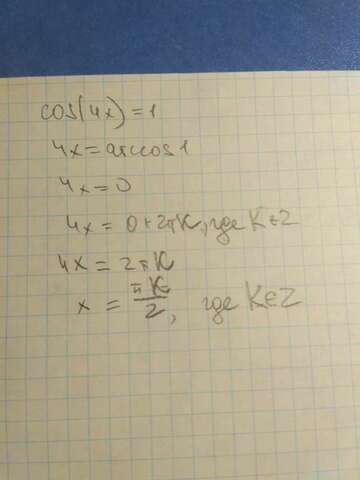 cos(4x)=1
4x=arccos1
4x=0
4x = 0+2πK, где K∈Z
4x = 2πK
x = πK/2, где K∈Z